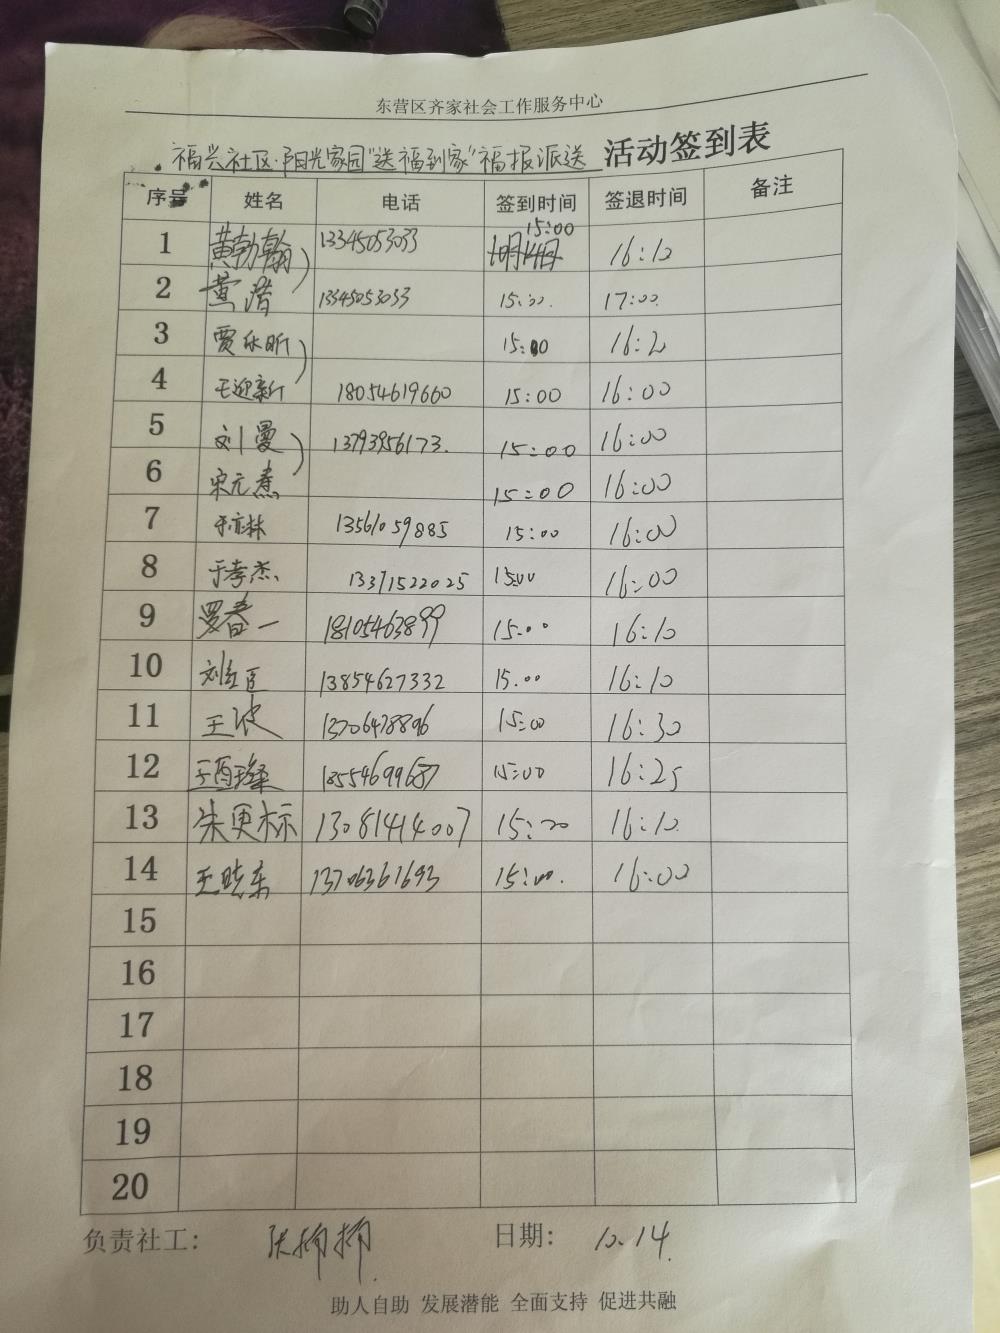 东营区齐家社会工作服务中心
福兴社区·阳光家园"送福到家"福报派送 活动签到表
序号 姓名 电话 签到时间 签退时间 备注
1 黄勃翰 13345053033 15:00 16:10
2 黄潜 13345053033 15:00. 17:00.
3 贾永昕 15:00 16:2
4 王迎新 18054619660 15:00 16:00
5 刘曼 13793956173. 15:00 16:00
6 宋元熹 15:00 16:00
7 于亦林 13561059885 15:00 16:00
8 于孝杰 13371522025 15:00 16:00
9 一 18105463899 15:00 16:10
10 刘红臣 13854627332 15:00 16:10
11 王波 13706478896 15:00 16:30
12 18554699687 15:00 16:25
13 朱更标 13081414007 15:20 16:10
14 王晓东 13706361693 15:00. 16:00
15
16
17
18
19
20
负责社工: 张 日期: 10.14.
助人自助 发展潜能 全面支持 促进共融